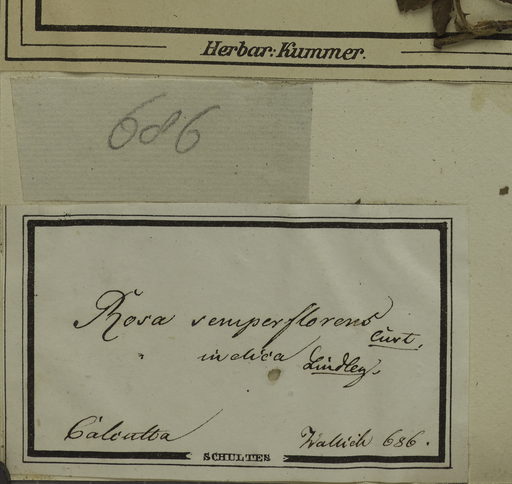 Herbar: Kummer.
686
Rosa semperflorens Curt.
indica Lindley.
Calcutta Wallich 686.
SCHULTES